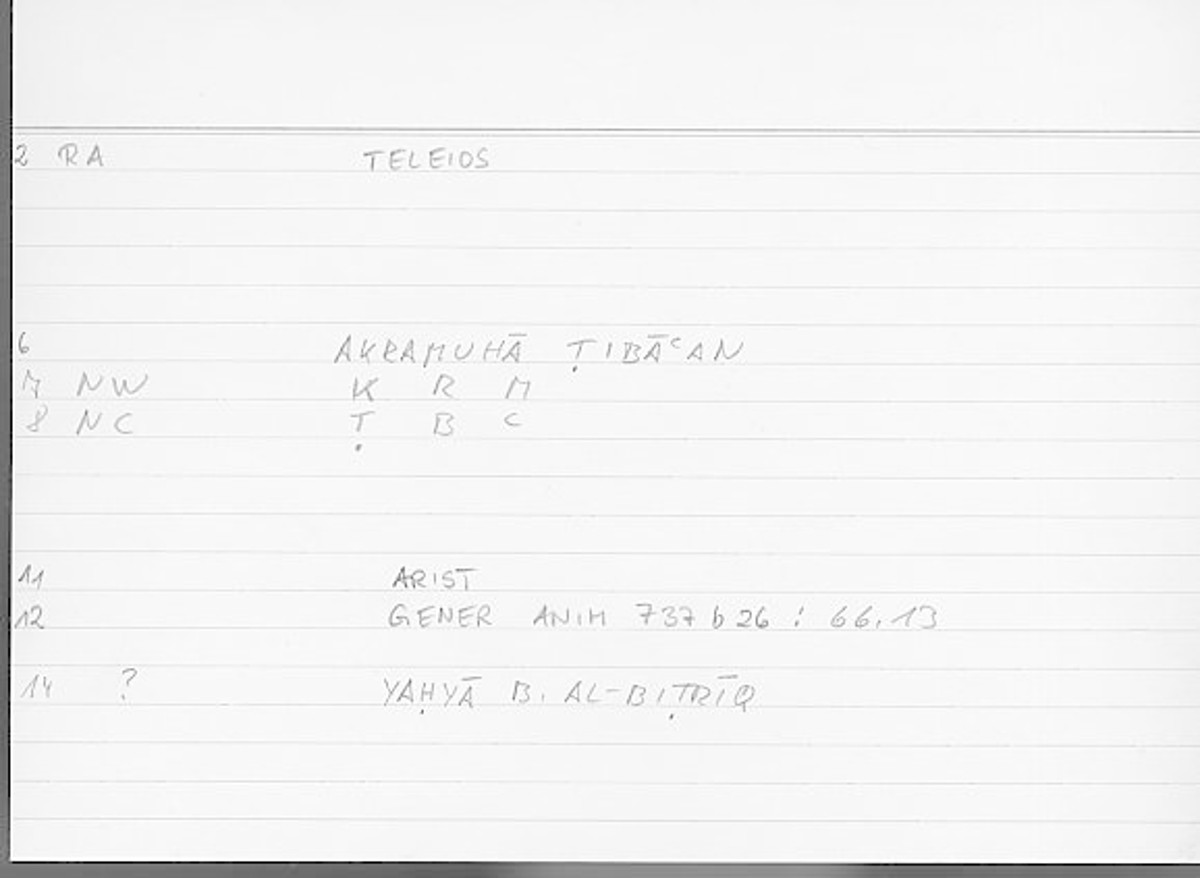 2 RA TELEIOS
6 AKRAMUHĀ ṬIBĀʿAN
7 NW K R M
8 NC Ṭ B ʿ
11 ARIST
12 GENER ANIM 737 b 26 : 66.13
14 ? YAḤYĀ B. AL-BIṬRĪQ